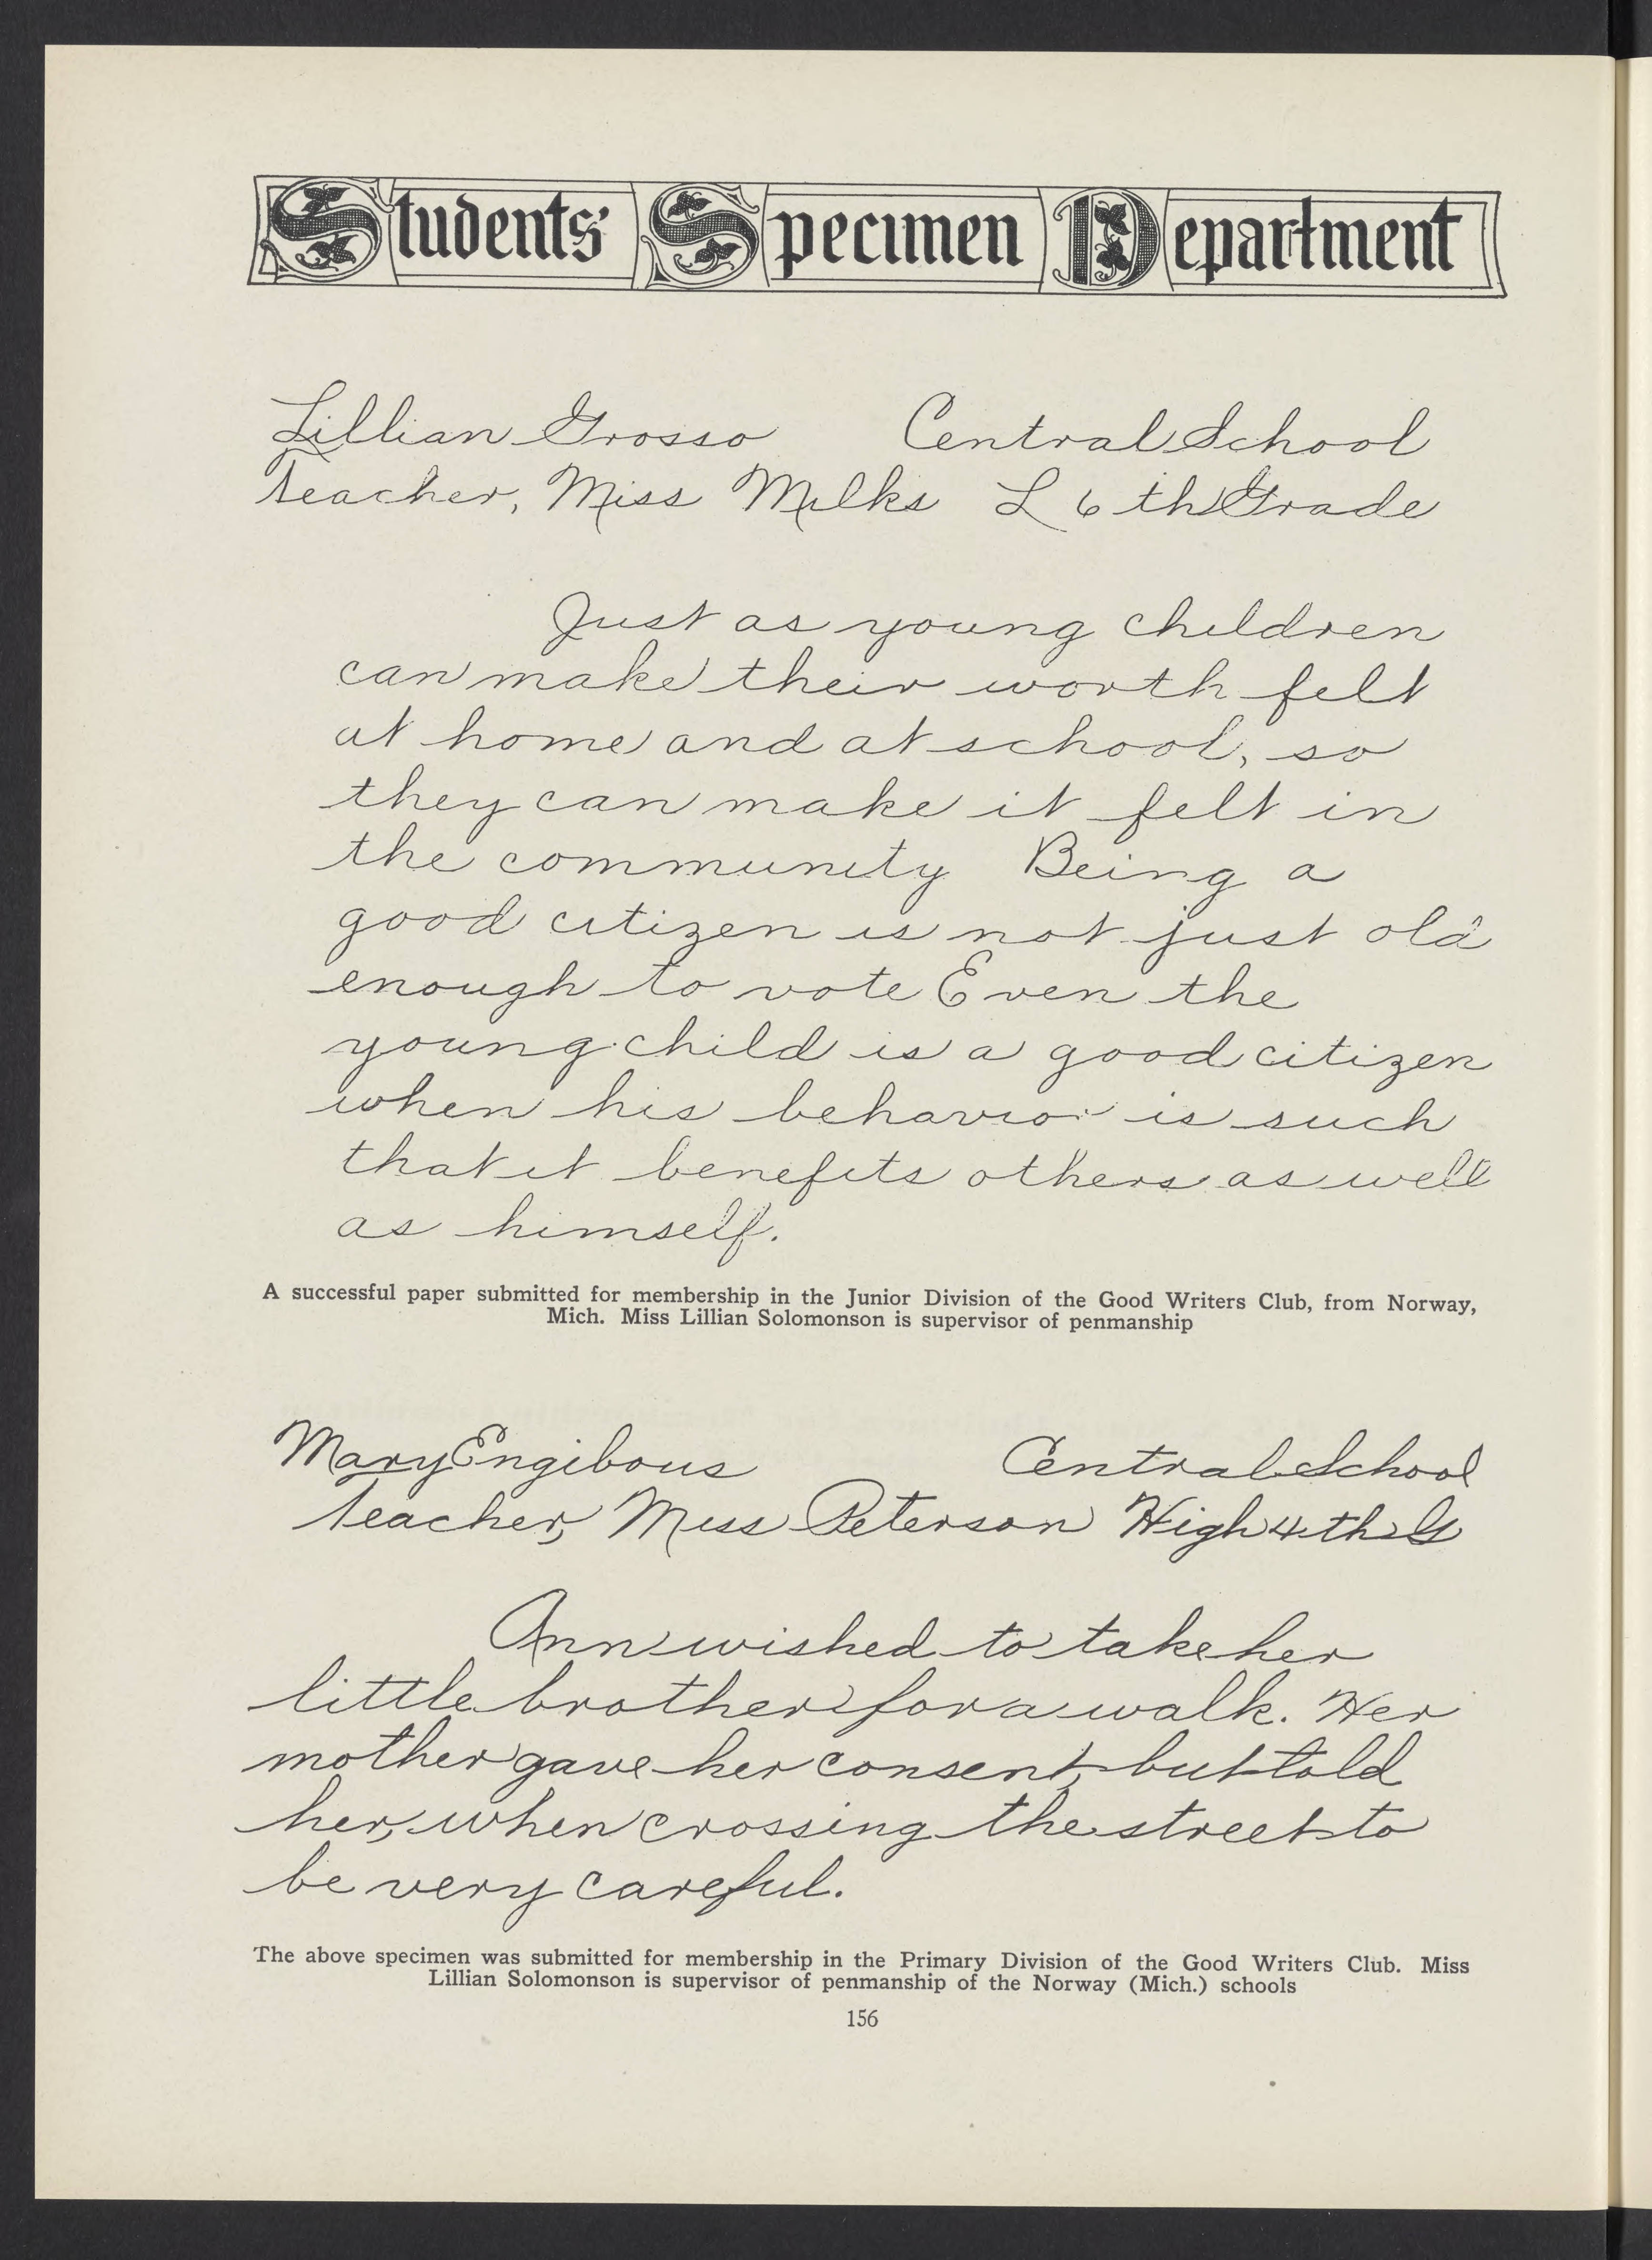 Students' Specimen Department
Lillian Grosso Central School
Teacher, Miss Milks L 6th Grade
Just as young children
can make their worth felt
at home and at school, so
they can make it felt in
the community Being a
good citizen is not just old
enough to vote Even the
young child is a good citizen
when his behavior is such
that it benefits others as well
as himself.
A successful paper submitted for membership in the Junior Division of the Good Writers Club, from Norway,
Mich. Miss Lillian Solomonson is supervisor of penmanship
Mary Engibous Central School
Teacher, Miss Peterson High 4th G
Ann wished to take her
little brother for a walk. Her
mother gave her consent, but told
her, when crossing the street to
be very careful.
The above specimen was submitted for membership in the Primary Division of the Good Writers Club. Miss
Lillian Solomonson is supervisor of penmanship of the Norway (Mich.) schools
156